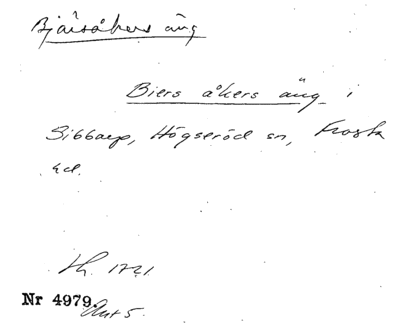 Bjärsåkers äng
Biers åkers äng i
Sibbarp, Högseröd sn, Frosta
hd.
1721.
Nr 4979.